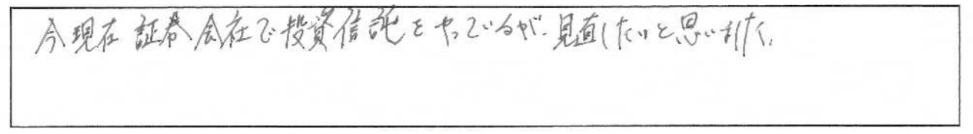 今現在証券会社で投資信託をやっているが、見直したいと思いました。